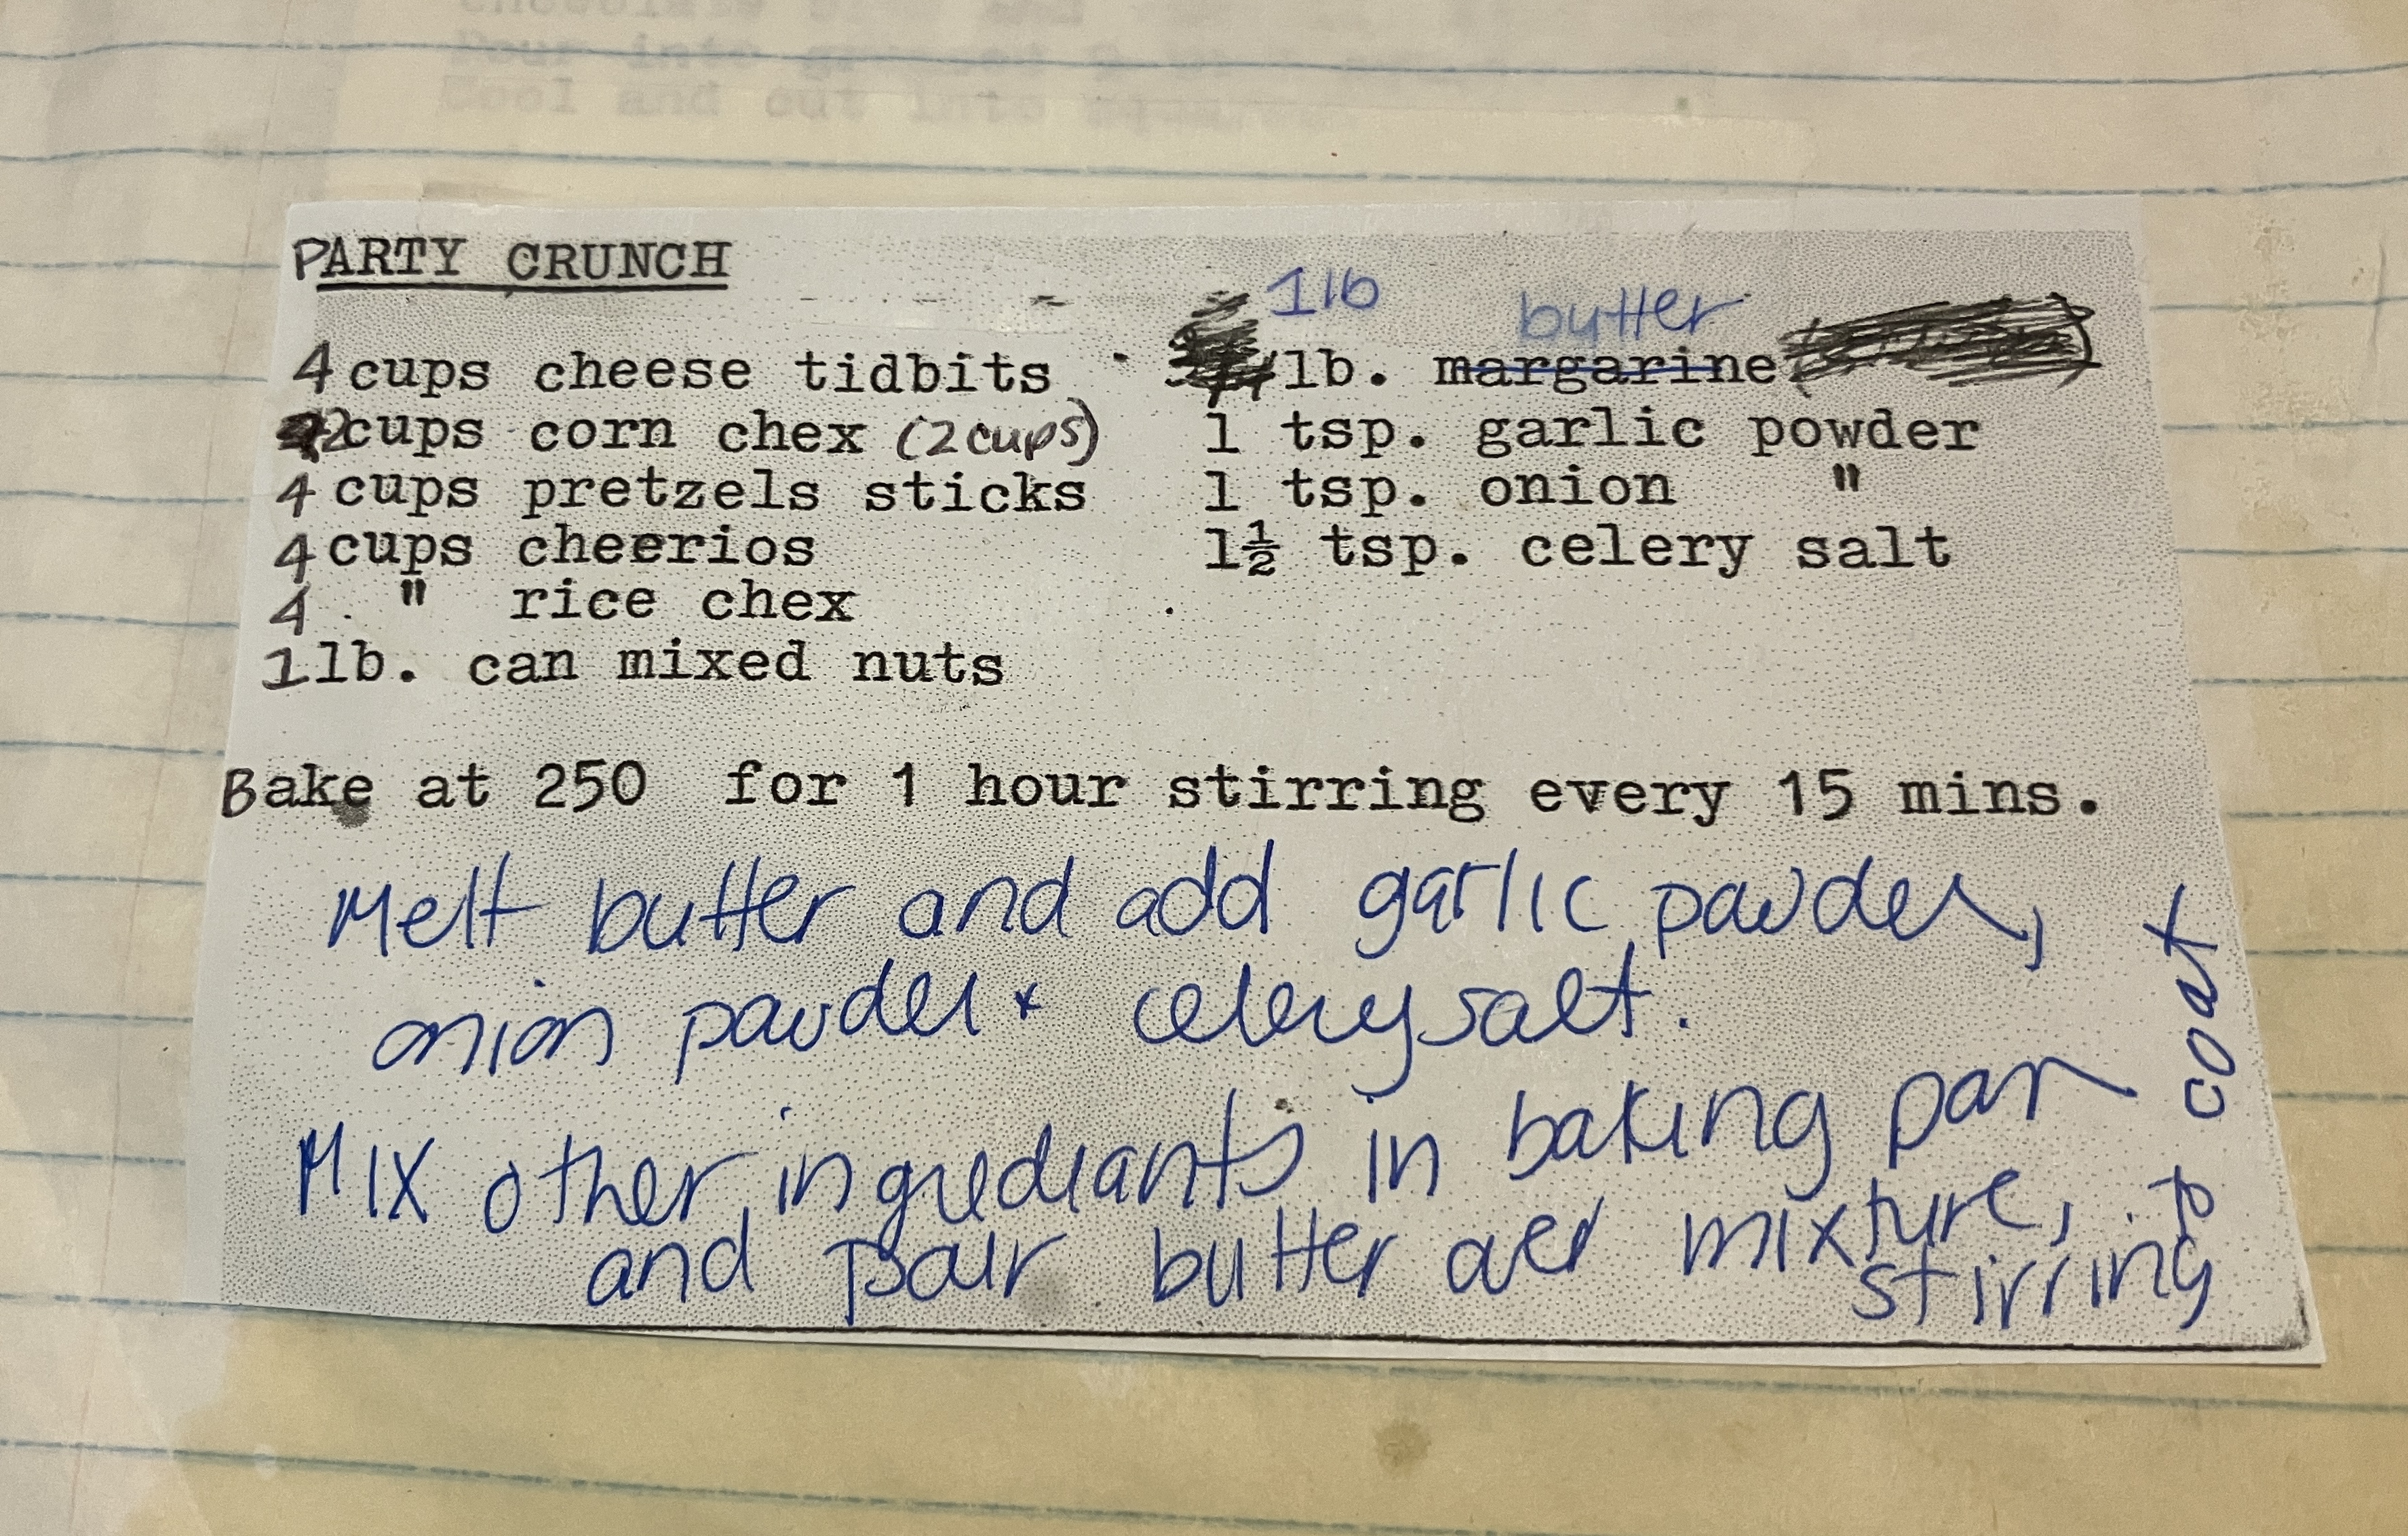 Cool and cut into
PARTY CRUNCH
4 cups cheese tidbits
2 cups corn chex (2 cups)
4 cups pretzels sticks
4 cups cheerios
4 " rice chex
1 lb. can mixed nuts
1 lb butter
lb. margarine
1 tsp. garlic powder
1 tsp. onion "
1½ tsp. celery salt
Bake at 250 for 1 hour stirring every 15 mins.
Melt butter and add garlic powder,
onion powder + celery salt.
Mix other ingrediants in baking pan
and pour butter over mixture,
stirring
to coat